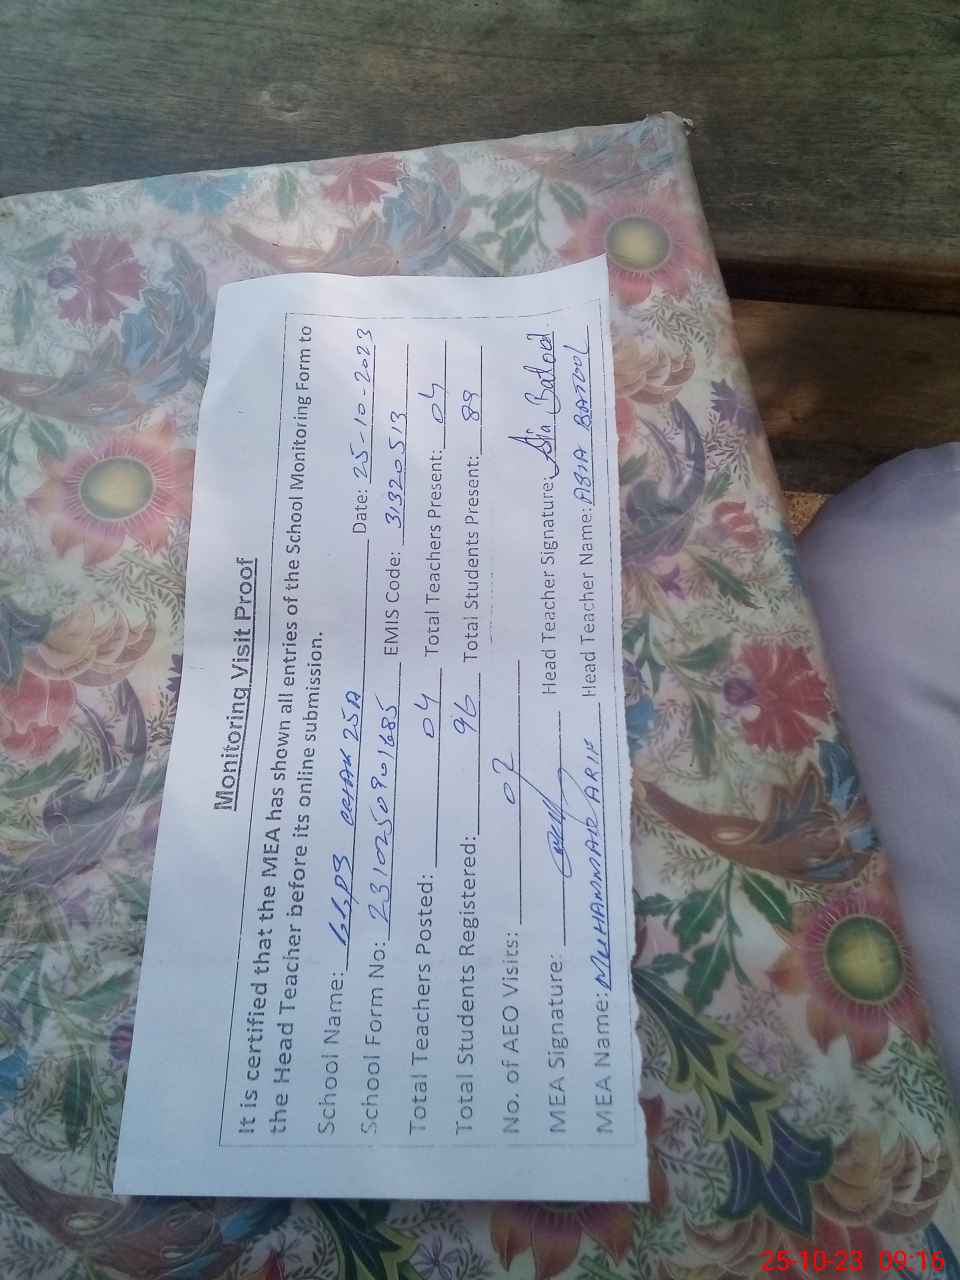 Monitoring Visit Proof
It is certified that the MEA has shown all entries of the School Monitoring Form to
the Head Teacher before its online submission.
School Name: GGPS CHAK 25A Date: 25-10-2023
School Form No: 2310250901685 EMIS Code: 31320513
Total Teachers Posted: 04 Total Teachers Present: 04
Total Students Registered: 96 Total Students Present: 89
No. of AEO Visits: 02
MEA Signature: Head Teacher Signature: Asia Batool.
MEA Name: MUHAMMAD ARIF Head Teacher Name: ASIA BATOOL
25-10-23 09:16